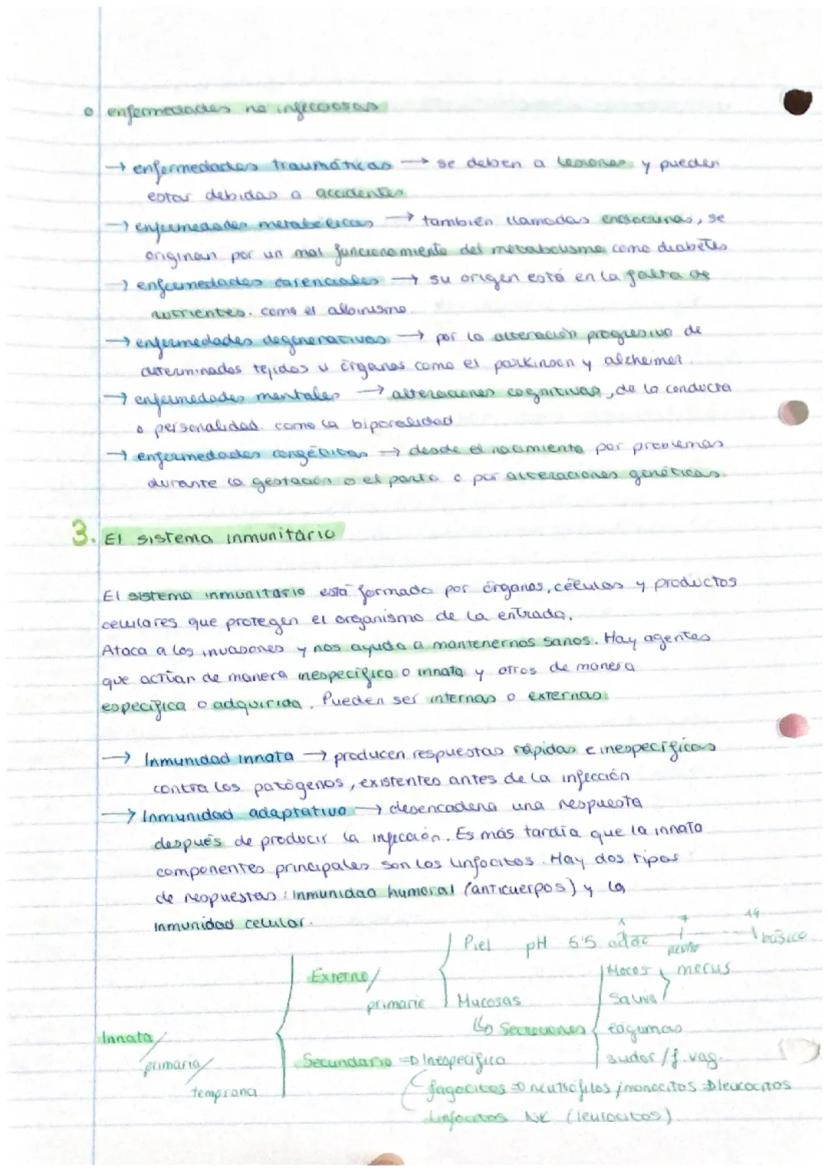 o enfermedades no infecciosas
→ enfermedades traumáticas → se deben a lesiones y pueden
estar debidas a accidentes
→ enfermedades metabólicas → también llamadas endocrinas, se
originan por un mal funcionamiento del metabolismo como diabetes
→ enfermedades carenciales → su origen está en la falta de
nutrientes. como el albinismo.
→ enfermedades degenerativas → por la alteración progresiva de
determinados tejidos u órganos como el parkinson y alzheimer.
→ enfermedades mentales → alteraciones cognitivas, de la conducta
o personalidad. como la bipolaridad
→ enfermedades congénitas → desde el nacimiento por problemas
durante la gestación o el parto o por alteraciones genéticas.
3. El sistema inmunitario
El sistema inmunitario está formado por órganos, células y productos
celulares que protegen el organismo de la entrada.
Ataca a los invasores y nos ayuda a mantenernos sanos. Hay agentes
que actúan de manera inespecífica o innata y otros de manera
específica o adquirida. Pueden ser internas o externas.
→ Inmunidad innata → producen respuestas rápidas e inespecíficas
contra los patógenos, existentes antes de la infección
→ Inmunidad adaptativa → desencadena una respuesta
después de producir la infección. Es más tardía que la innata
componentes principales son los linfocitos. Hay dos tipos
de respuestas: inmunidad humoral (anticuerpos) y la
inmunidad celular.
7 14
Piel pH 5'5 ácido neutro básico
Externo/ Mocos mocus
primaria Mucosas Saliva
↳ Secreciones lágrimas
Innata/ Secundario ⇒ Inespecífica sudor / f. vag.
primaria/ fagocitos ⇒ neutrófilos / monocitos ⇒ leucocitos
temprana
Linfocitos NK (leucocitos)